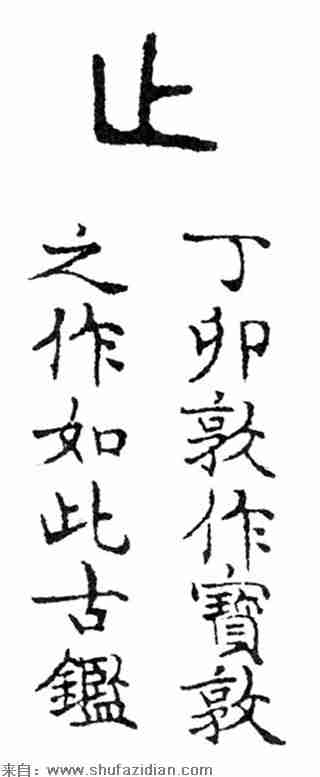 止
丁卯敦作寶敦
之作如此古鑑
来自：www.shufazidian.com